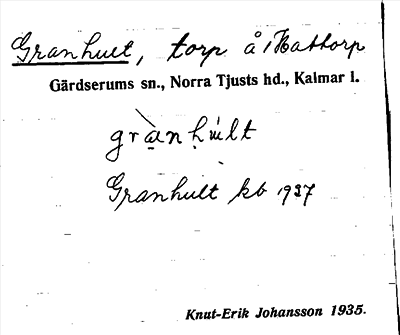 Granhult, torp å Hattorp
Gärdserums sn., Norra Tjusts hd., Kalmar l.
Granhult kb 1937
Knut-Erik Johansson 1935.